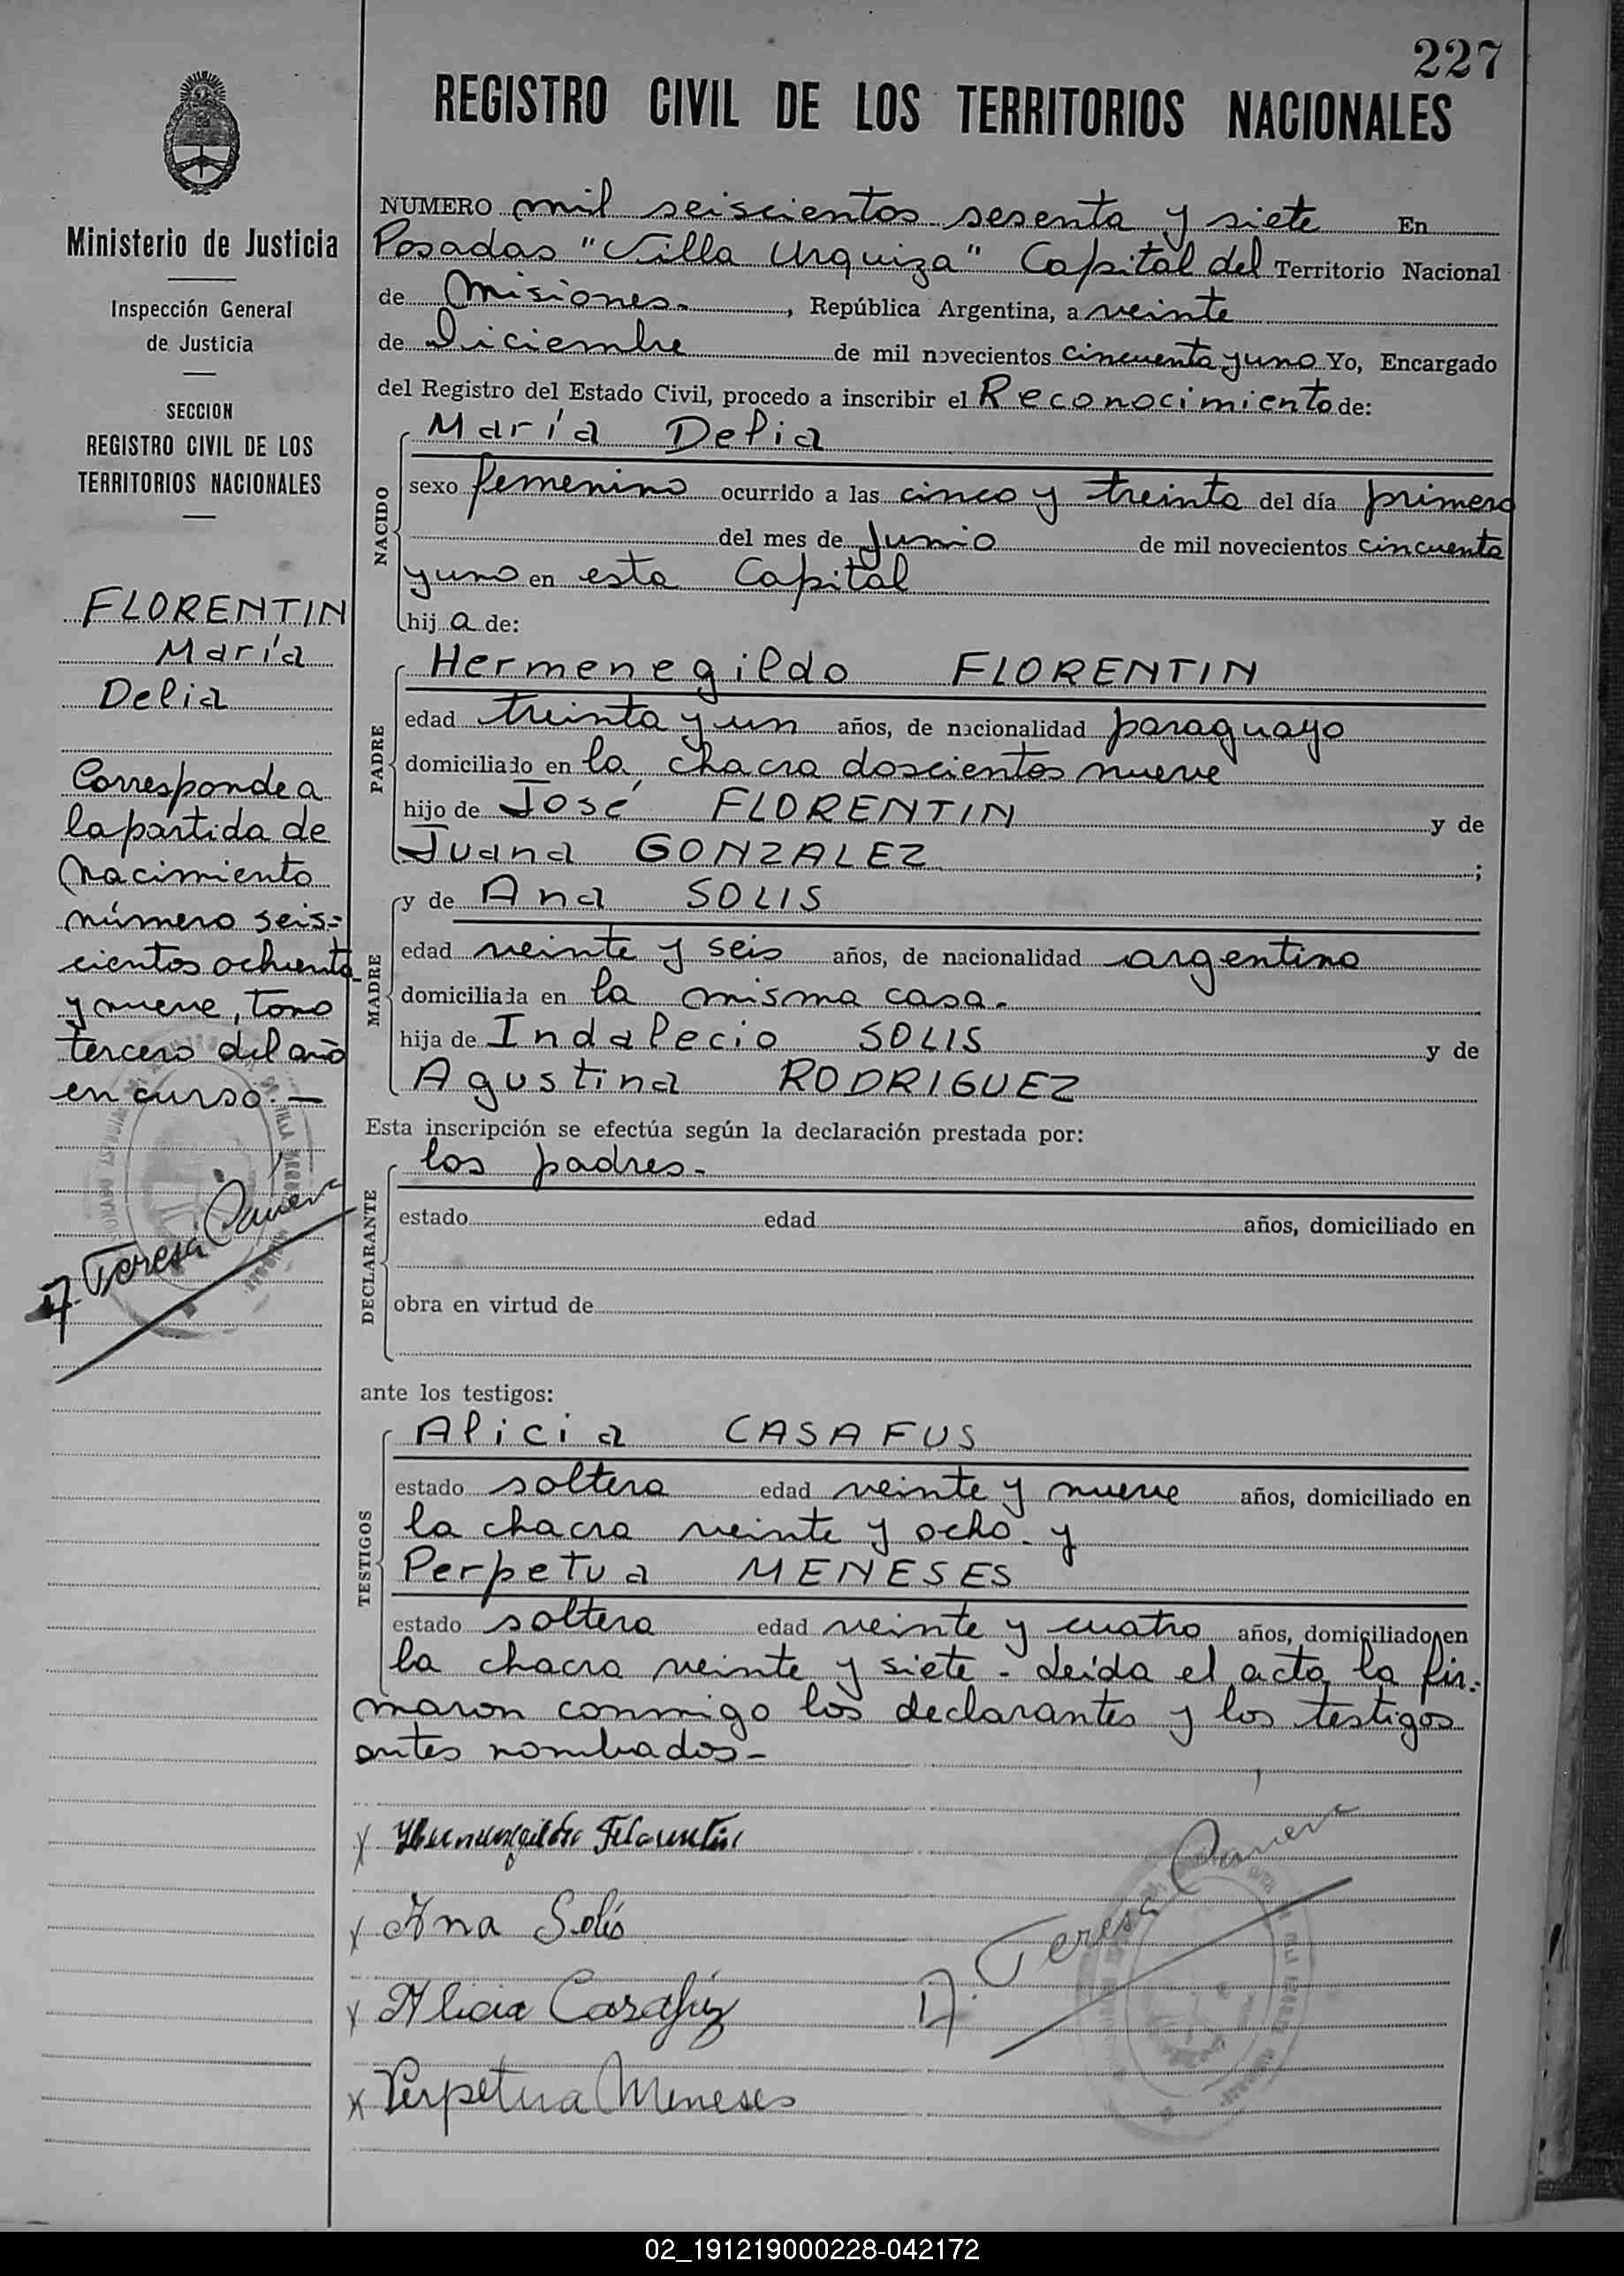 227
REGISTRO CIVIL DE LOS TERRITORIOS NACIONALES
Ministerio de Justicia
Inspección General
de Justicia
SECCION
REGISTRO CIVIL DE LOS
TERRITORIOS NACIONALES
FLORENTIN
María
Delia
Corresponde a
la partida de
Nacimiento
número seis=
cientos ochenta
y nueve, tomo
tercero del año
en curso.—
A. Teresa
NUMERO mil seiscientos sesenta y siete En
Posadas "Villa Urquiza" Capital del Territorio Nacional
de Misiones.-, República Argentina, a veinte
de Diciembre de mil novecientos cincuenta y uno Yo, Encargado
del Registro del Estado Civil, procedo a inscribir el Reconocimiento de:
NACIDO
María Delia
sexo femenino ocurrido a las cinco y treinta del día primero
del mes de Junio de mil novecientos cincuenta
y uno en esta Capital
hij a de:
PADRE
Hermenegildo FLORENTIN
edad treinta y un años, de nacionalidad paraguayo
domiciliado en la chacra doscientos nueve
hijo de José FLORENTIN y de
Juana GONZALEZ ;
MADRE
y de Ana SOLIS
edad veinte y seis años, de nacionalidad argentina
domiciliada en la misma casa.-
hija de Indalecio SOLIS y de
Agustina RODRIGUEZ
Esta inscripción se efectúa según la declaración prestada por:
DECLARANTE
los padres.-
estado edad años, domiciliado en
obra en virtud de
ante los testigos:
TESTIGOS
Alicia CASAFUS
estado soltera edad veinte y nueve años, domiciliado en
la chacra veinte y ocho - y
Perpetua MENESES
estado soltera edad veinte y cuatro años, domiciliado en
la chacra veinte y siete - Leída el acta, la fir=
maron conmigo los declarantes y los testigos
antes nombrados -
x Hermenegildo Florentin
x Ana Solís
x Alicia Casafúz
x Perpetua Meneses
A. Teresa
02_191219000228-042172